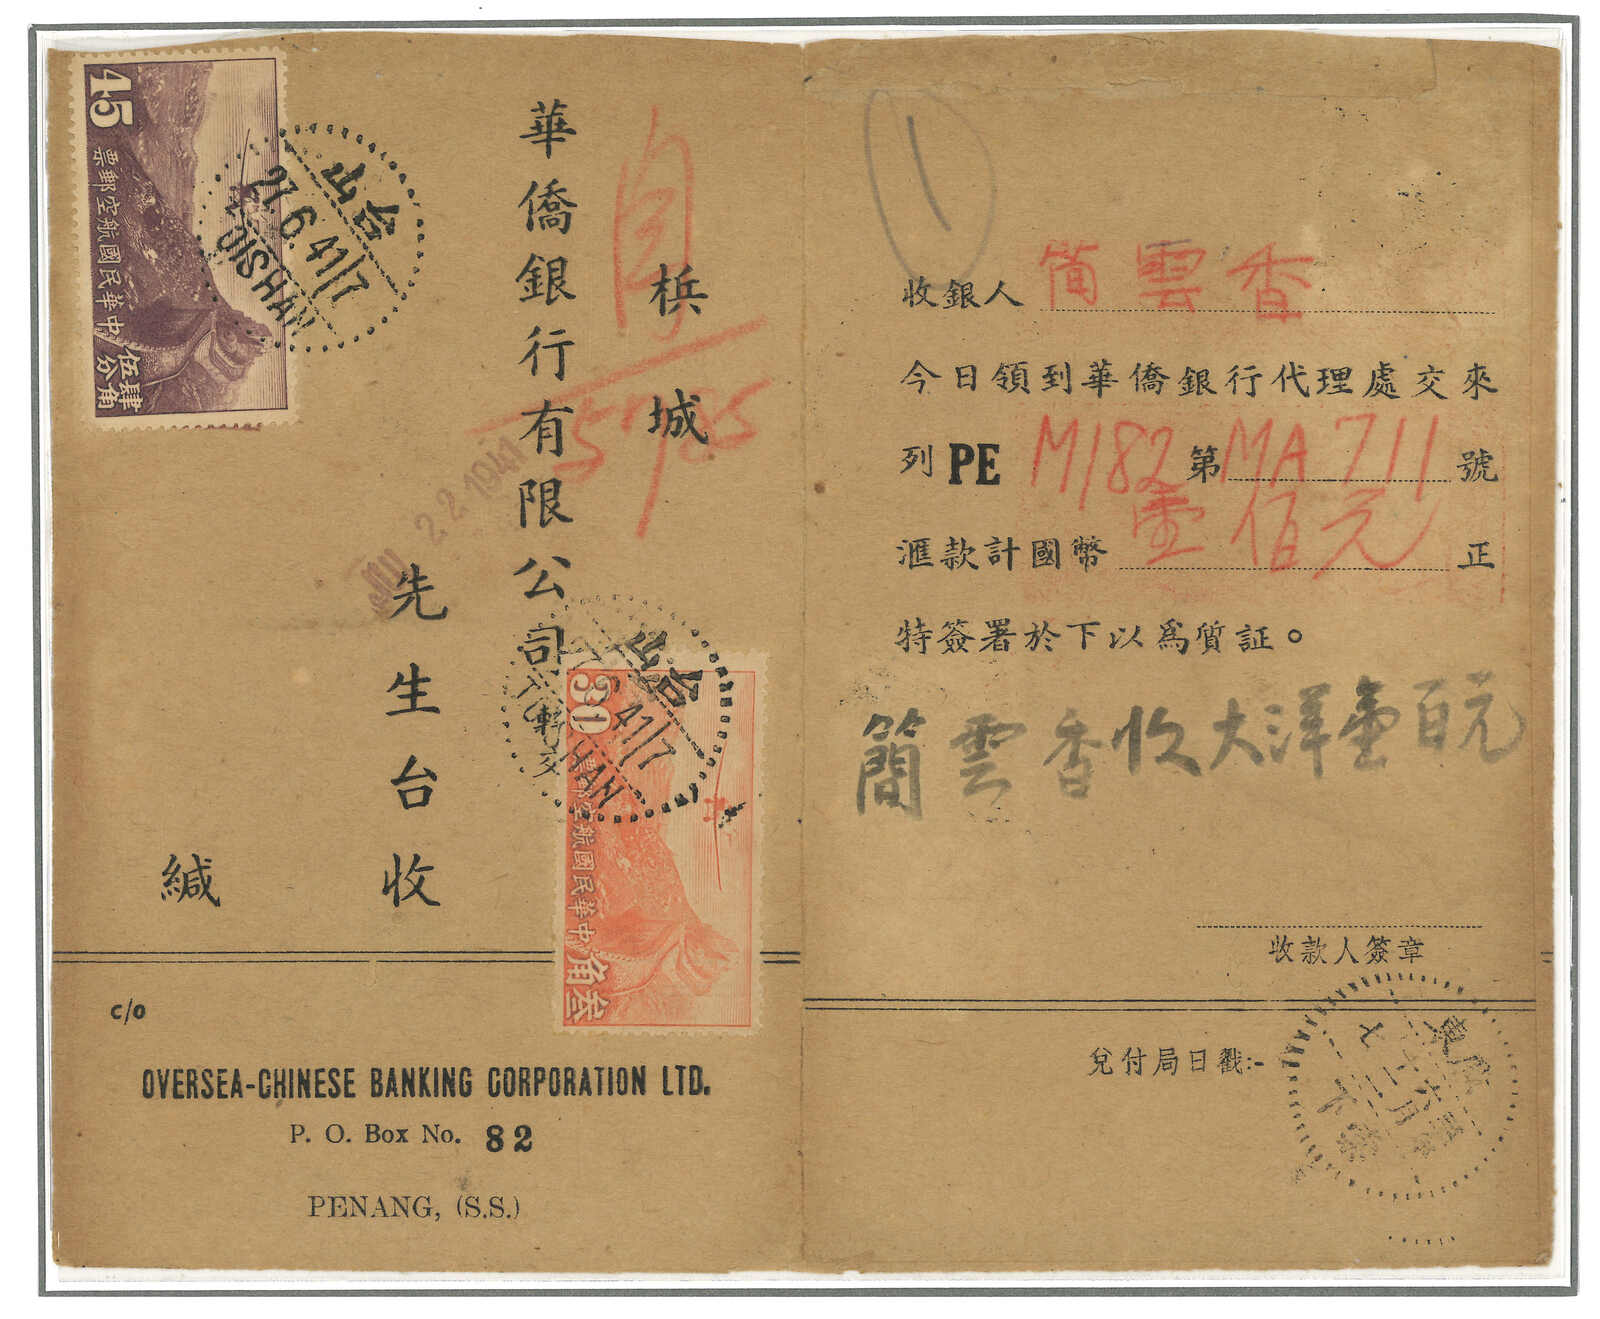 45
中華民國航空郵票
肆角
伍分
台山
27.6.41/7
TOISHAN
檳城
華僑銀行有限公司
轉交
先生台收
緘
22 1941
30
中華民國航空郵票
叁角
台山
41/7
c/o
OVERSEA-CHINESE BANKING CORPORATION LTD.
P. O. Box No. 82
PENANG, (S.S.)
1
收銀人 簡雲香
今日領到華僑銀行代理處交來
列 PE M182 第 MA 711 號
滙款計國幣 壹佰元 正
特簽署於下以爲質証。
簡雲香收大洋壹百元
收款人簽章
兌付局日戳:-